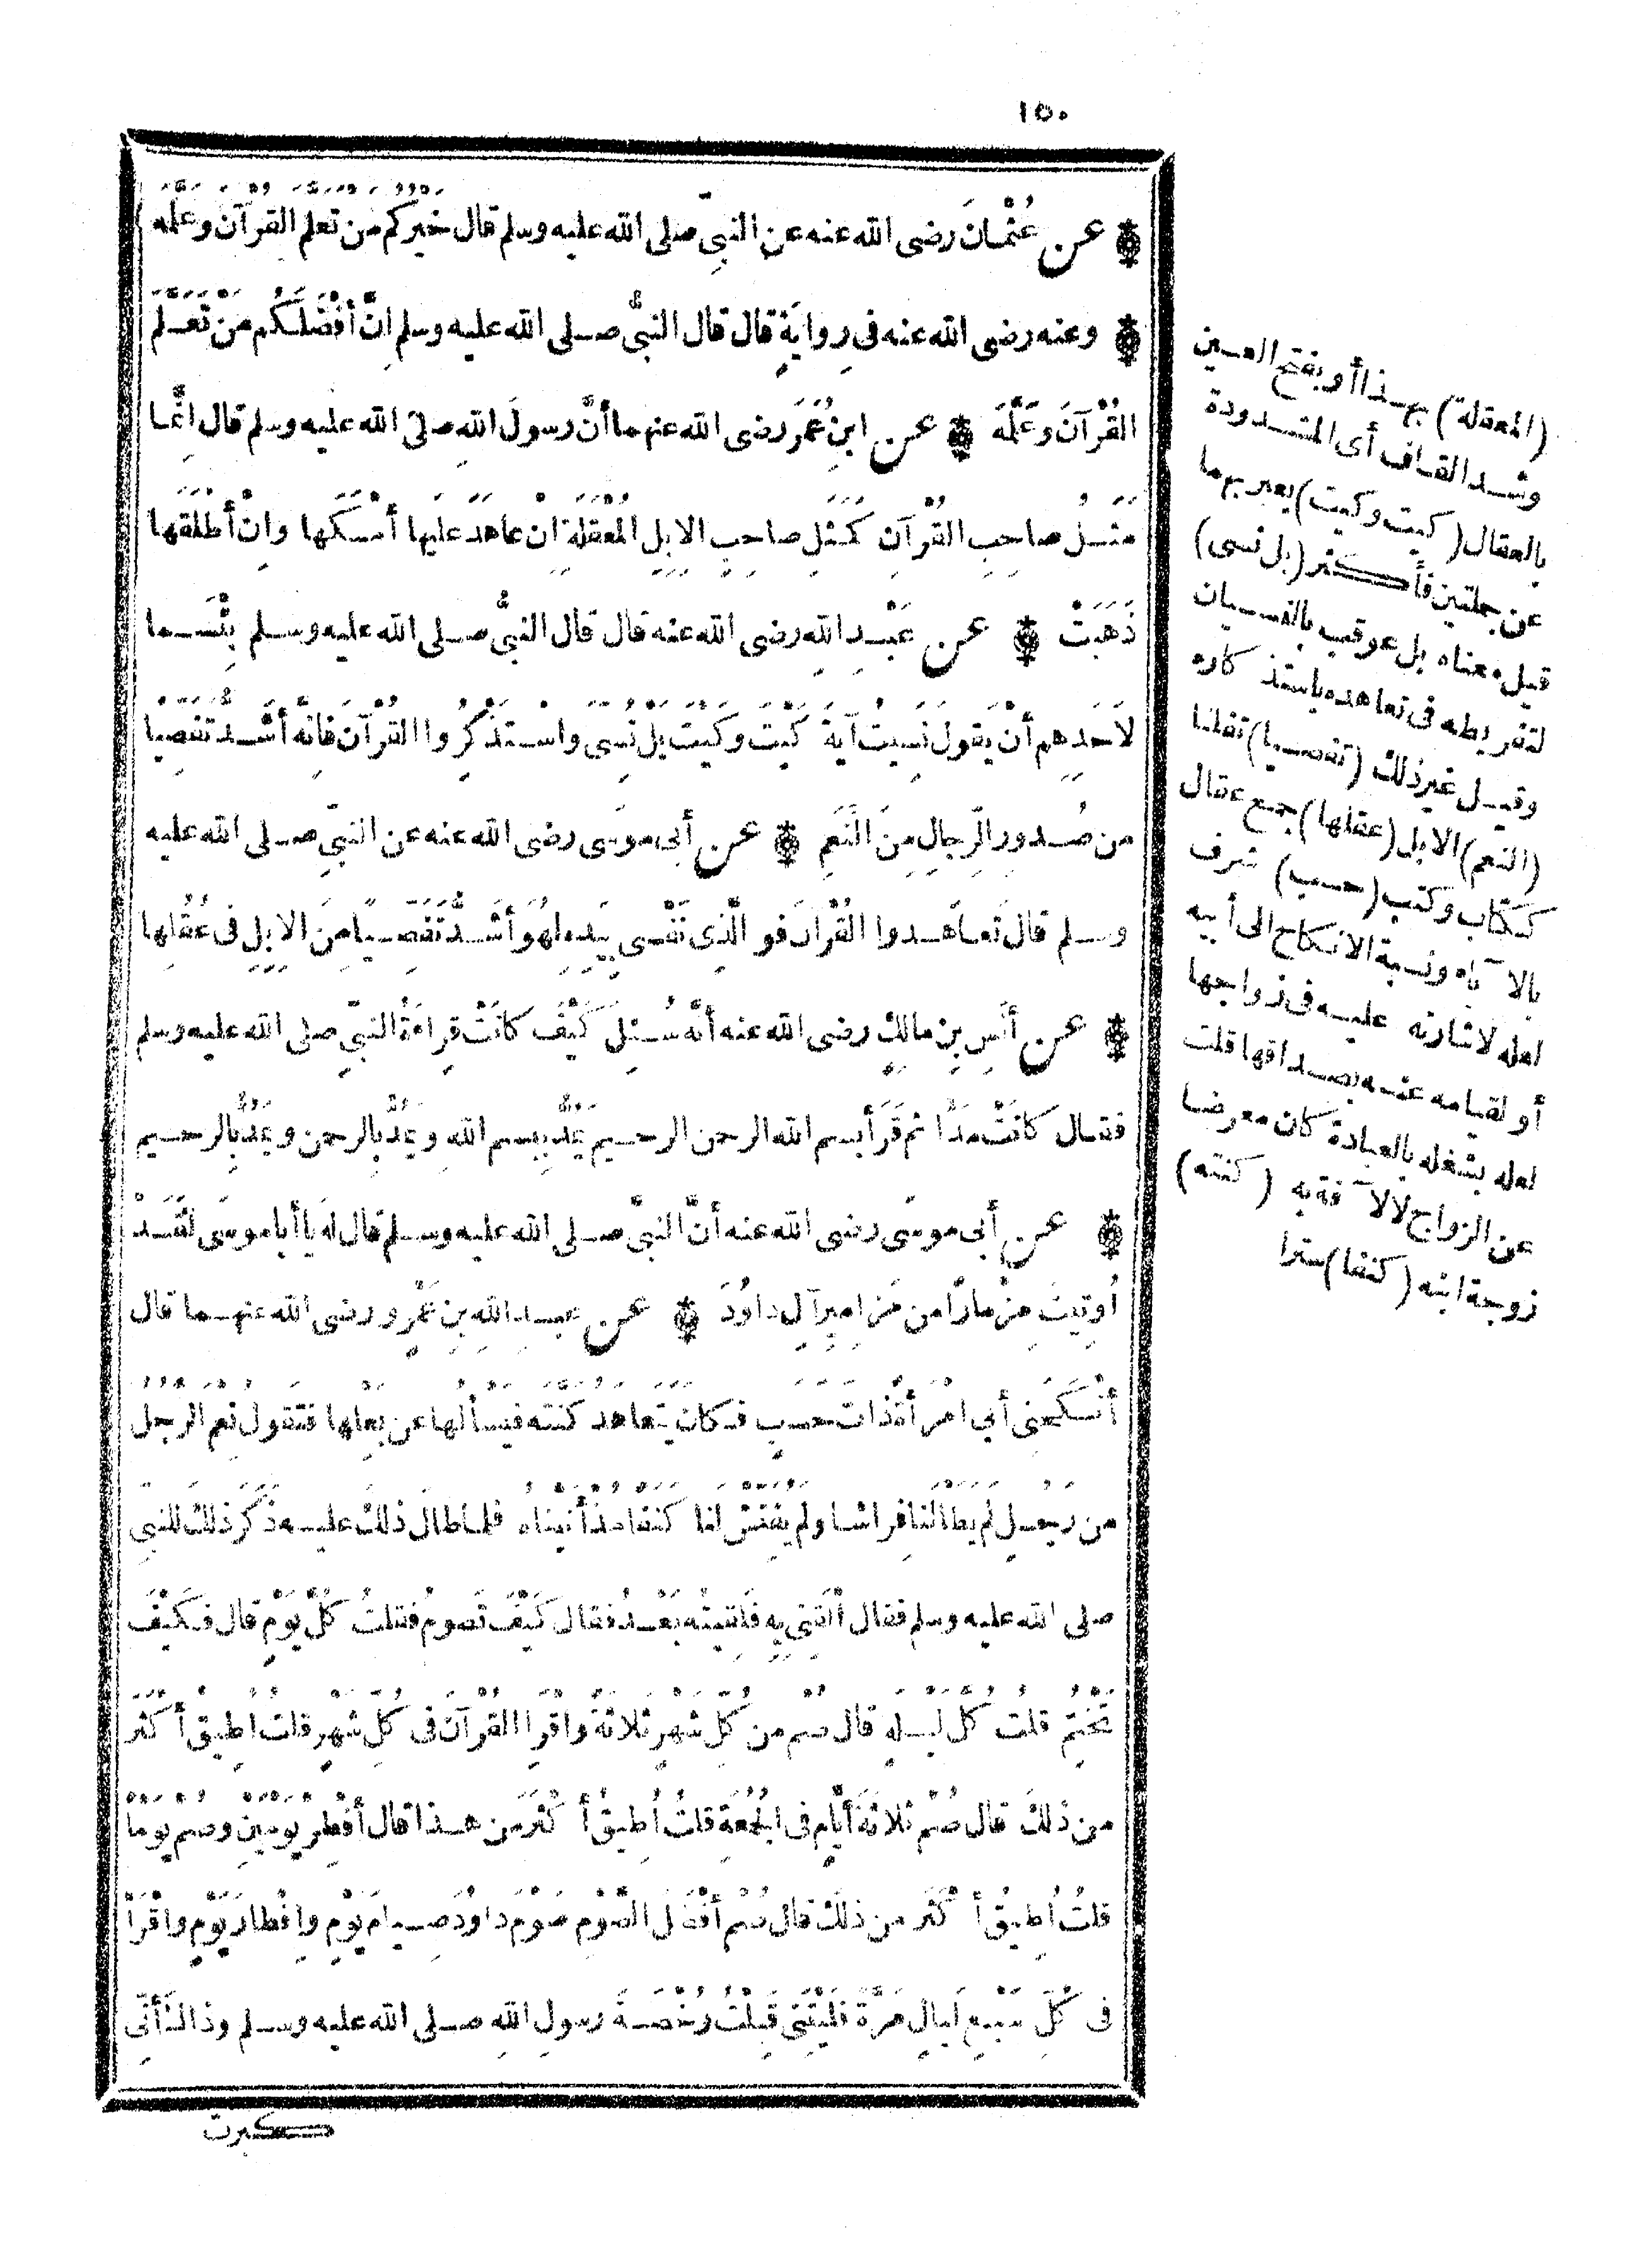 ١٥٠
عن عُثْمَانَ رضى الله عنه عن النبىِّ صلى الله عليه وسلم قال خَيْرُكُمْ مَنْ تَعَلَّمَ القُرْآنَ وعَلَّمَهُ
وعنه رضى الله عنه فى رِوايَةٍ قال قال النبىُّ صلى الله عليه وسلم اِنَّ أَفْضَلَكُم مَنْ تَعَلَّمَ
القُرْآنَ وَعَلَّمَهُ عن ابنِ عُمَرَ رضى الله عنهما أنَّ رسولَ اللهِ صلى الله عليه وسلم قال اِنَّمَا
مَثَلُ صاحِبِ القُرْآنِ كَمَثَلِ صاحِبِ الاِبِلِ المُعْقَلَةِ اِنْ عاهَدَ عَلَيها أَمْسَكَها واِنْ أَطْلَقَها
ذَهَبَتْ عن عَبْدِ اللهِ رضى الله عنه قال قال النبىُّ صلى الله عليه وسلم بِئْسَما
لاَحَدِهِم أَنْ يَقولَ نَسِيتُ آيَةَ كَيْتَ وكَيْتَ بَلْ نُسِّىَ واسْتَذْكِرُوا القُرْآنَ فَاِنَّهُ أَشَدُّ تَفَصِّيًا
من صُدورِ الرِّجالِ مِنَ النَّعَمِ عن أبى موسَى رضى الله عنه عن النبىِّ صلى الله عليه
وسلم قالَ تَعاهَدوا القُرْآنَ فو الَّذِى نَفْسِى بِيَدِهِ لهُوَ أَشَدُّ تَفَصِّيًا مِنَ الاِبِلِ فى عُقُلِها
عن أنَسِ بنِ مالِكٍ رضى الله عنه أنَّه سُئِلَ كَيْفَ كانَتْ قِراءَةُ النبىِّ صلى الله عليه وسلم
فقال كانَتْ مَدًّا ثم قَرَأَ بسم الله الرحمن الرحيم يَمُدُّ بِبِسم اللهِ ويَمُدُّ بِالرحمن ويَمُدُّ بِالرحيم
عن أبى موسَى رضى الله عنه أنَّ النبىَّ صلى الله عليه وسلم قال له يا أبا موسَى لَقَدْ
أُوتِيتَ مِزْمارًا من مَزامِيرِ آلِ داوُدَ عن عبدِ اللهِ بنِ عَمْرٍو رضى الله عنهما قال
أَنْكَحَنِى أبى امْرَأَةً ذاتَ حَسَبٍ فكانَ يَتَعاهَدُ كَنَّتَهُ فَيَسْأَلُها عن بَعْلِها فتَقولُ نِعْمَ الرجُلُ
من رَجُلٍ لَمْ يَطَأْ لَنا فِراشًا ولم يُفَتِّشْ لَنا كَنَفًا مُذْ أَتَيْناهُ فلما طالَ ذلكَ عليه ذَكَرَ ذلكَ للنبىِّ
صلى الله عليه وسلم فقال الْقَنِى بِهِ فَلَقِيتُه بَعْدُ فقال كَيْفَ تَصومُ فقلتُ كُلَّ يَوْمٍ قال فكَيْفَ
تَخْتِمُ قلتُ كُلَّ لَيْلَةٍ قال صُمْ من كُلِّ شَهْرٍ ثَلاثَةً واقْرَإِ القُرْآنَ فى كُلِّ شَهْرٍ قلتُ أُطِيقُ أَكْثَرَ
من ذلكَ قال صُمْ ثَلاثَةَ أَيَّامٍ فى الجُمُعَةِ قلتُ أُطِيقُ أَكْثَرَ من هذا قال أَفْطِرْ يَوْمَيْنِ وصُم يوما
قلتُ أُطِيقُ أَكْثَرَ من ذلكَ قال صُمْ أَفْضَلَ الصَّوْمِ صَوْمَ داوُدَ صِيامَ يَوْمٍ واِفْطارَ يَوْمٍ واقْرَأْ
فى كُلِّ سَبْعِ لَيالٍ مَرَّةً فَلَيْتَنِى قَبِلْتُ رُخْصَةَ رسولِ اللهِ صلى الله عليه وسلم وذاك أَنِّى
كبرت
(المعقلة) بهذا أو بفتح العين
وشد القاف أى المشدودة
بالعقال (كيت وكيت) يعبر بهما
عن جملتين فأكثر (بل نسى)
قيل معناه بل عوقب بالنسيان
لتفريطه فى تعاهده باستذكاره
وقيل غير ذلك (تفصيا) تفلتا
(النعم) الابل (عقلها) جمع عقال
ككتاب وكتب (حسب) شرف
بالآباء ونسبة الانكاح الى أبيه
لعله لاشارته عليه فى زواجها
أو لقيامه عنه بصداقها قلت
لعله بشغله بالعبادة كان معرضا
عن الزواج لا لآفة به (كنته)
زوجة ابنه (كنفا) سترا